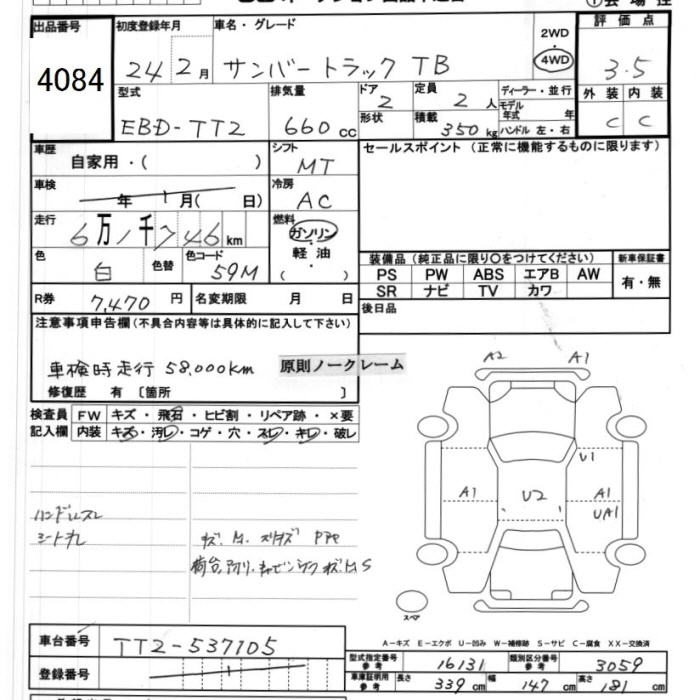 出品番号 4084
初度登録年月 24年 2月
車名・グレード サンバートラック TB
2WD
4WD
評価点 3.5
外装 C 内装 C
型式 EBD-TT2
排気量 660 cc
ドア 2
定員 2 人
形状
積載 350 kg
ディーラー・並行
モデル年式 年
ハンドル 左・右
車歴 自家用・( )
シフト MT
セールスポイント (正常に機能するものに限ります)
車検 年 月( 日)
冷房 AC
走行 6万1千746 km
燃料 ガソリン
軽油
( ・ )
色 白
色替
色コード 59M
装備品 (純正品に限り〇をつけてください)
新車保証書
PS PW ABS エアB AW
有・無
SR ナビ TV カワ
R券 7,470 円
名変期限 月 日
後日品
注意事項申告欄 (不具合内容等は具体的に記入して下さい)
車検時走行 58,000km
原則ノークレーム
修復歴 有 〔箇所 〕
検査員記入欄
FW キズ・飛石・ヒビ割・リペア跡・×要
内装 キズ・汚レ・コゲ・穴・スレ・キレ・破レ
A2 A1
U1
A1 U2 A1
UA1
ハンドルスレ
スペア
A-キズ E-エクボ U-凹み W-補修跡 S-サビ C-腐食 XX-交換済
車台番号 TT2-537105
登録番号
型式指定番号 参考 16131
類別区分番号 参考 3059
車庫証明用 参考 長さ 339 cm 幅 147 cm 高さ 181 cm